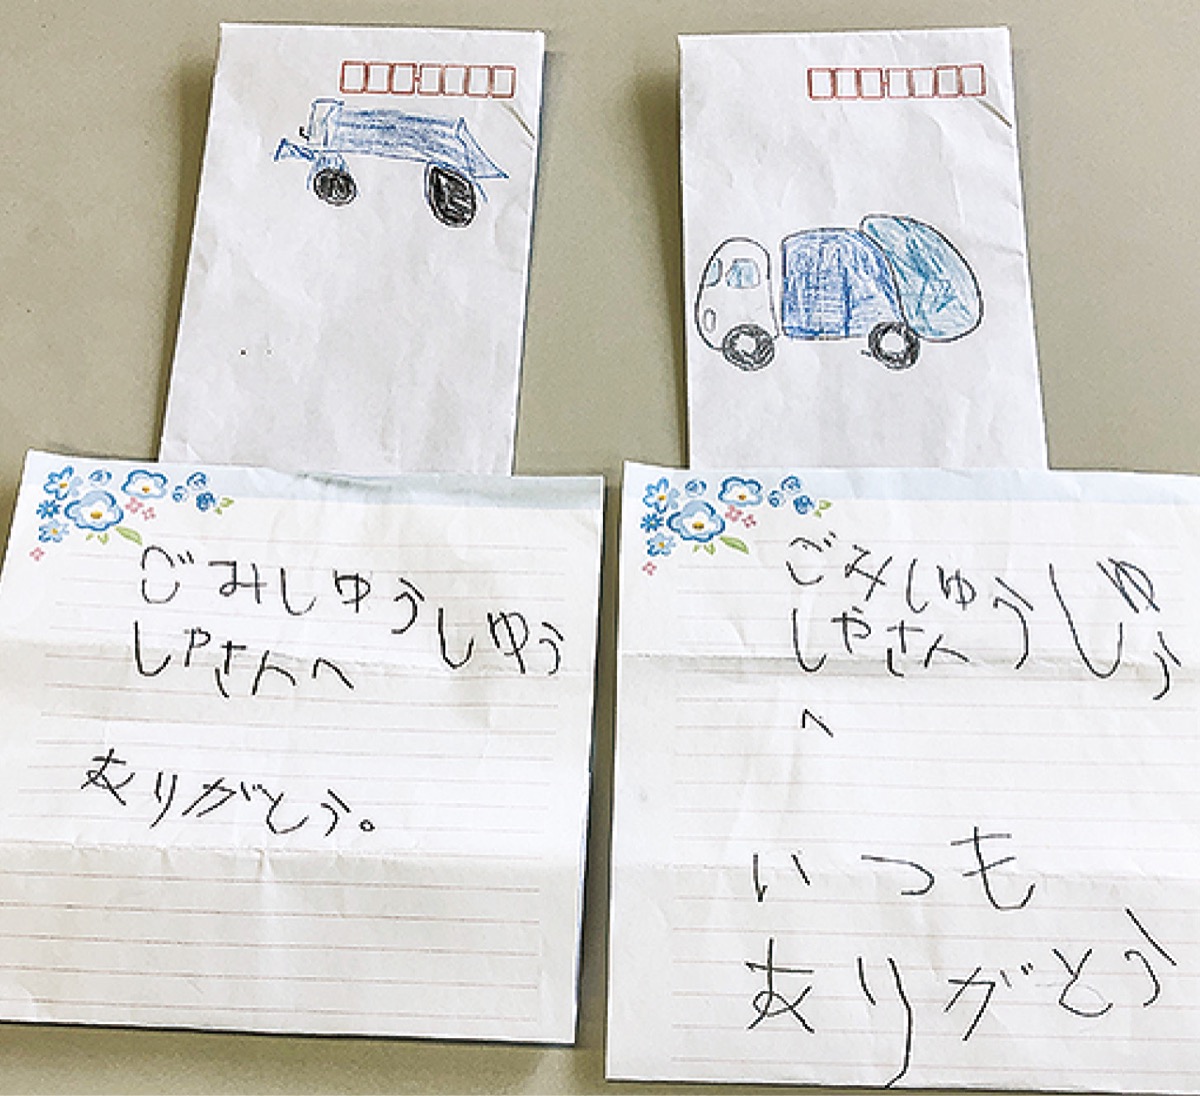 ごみしゅうしゅう
しゃさんへ
ありがとう。
ごみしゅうしゅう
しゃさん
へ
いつも
ありがとう